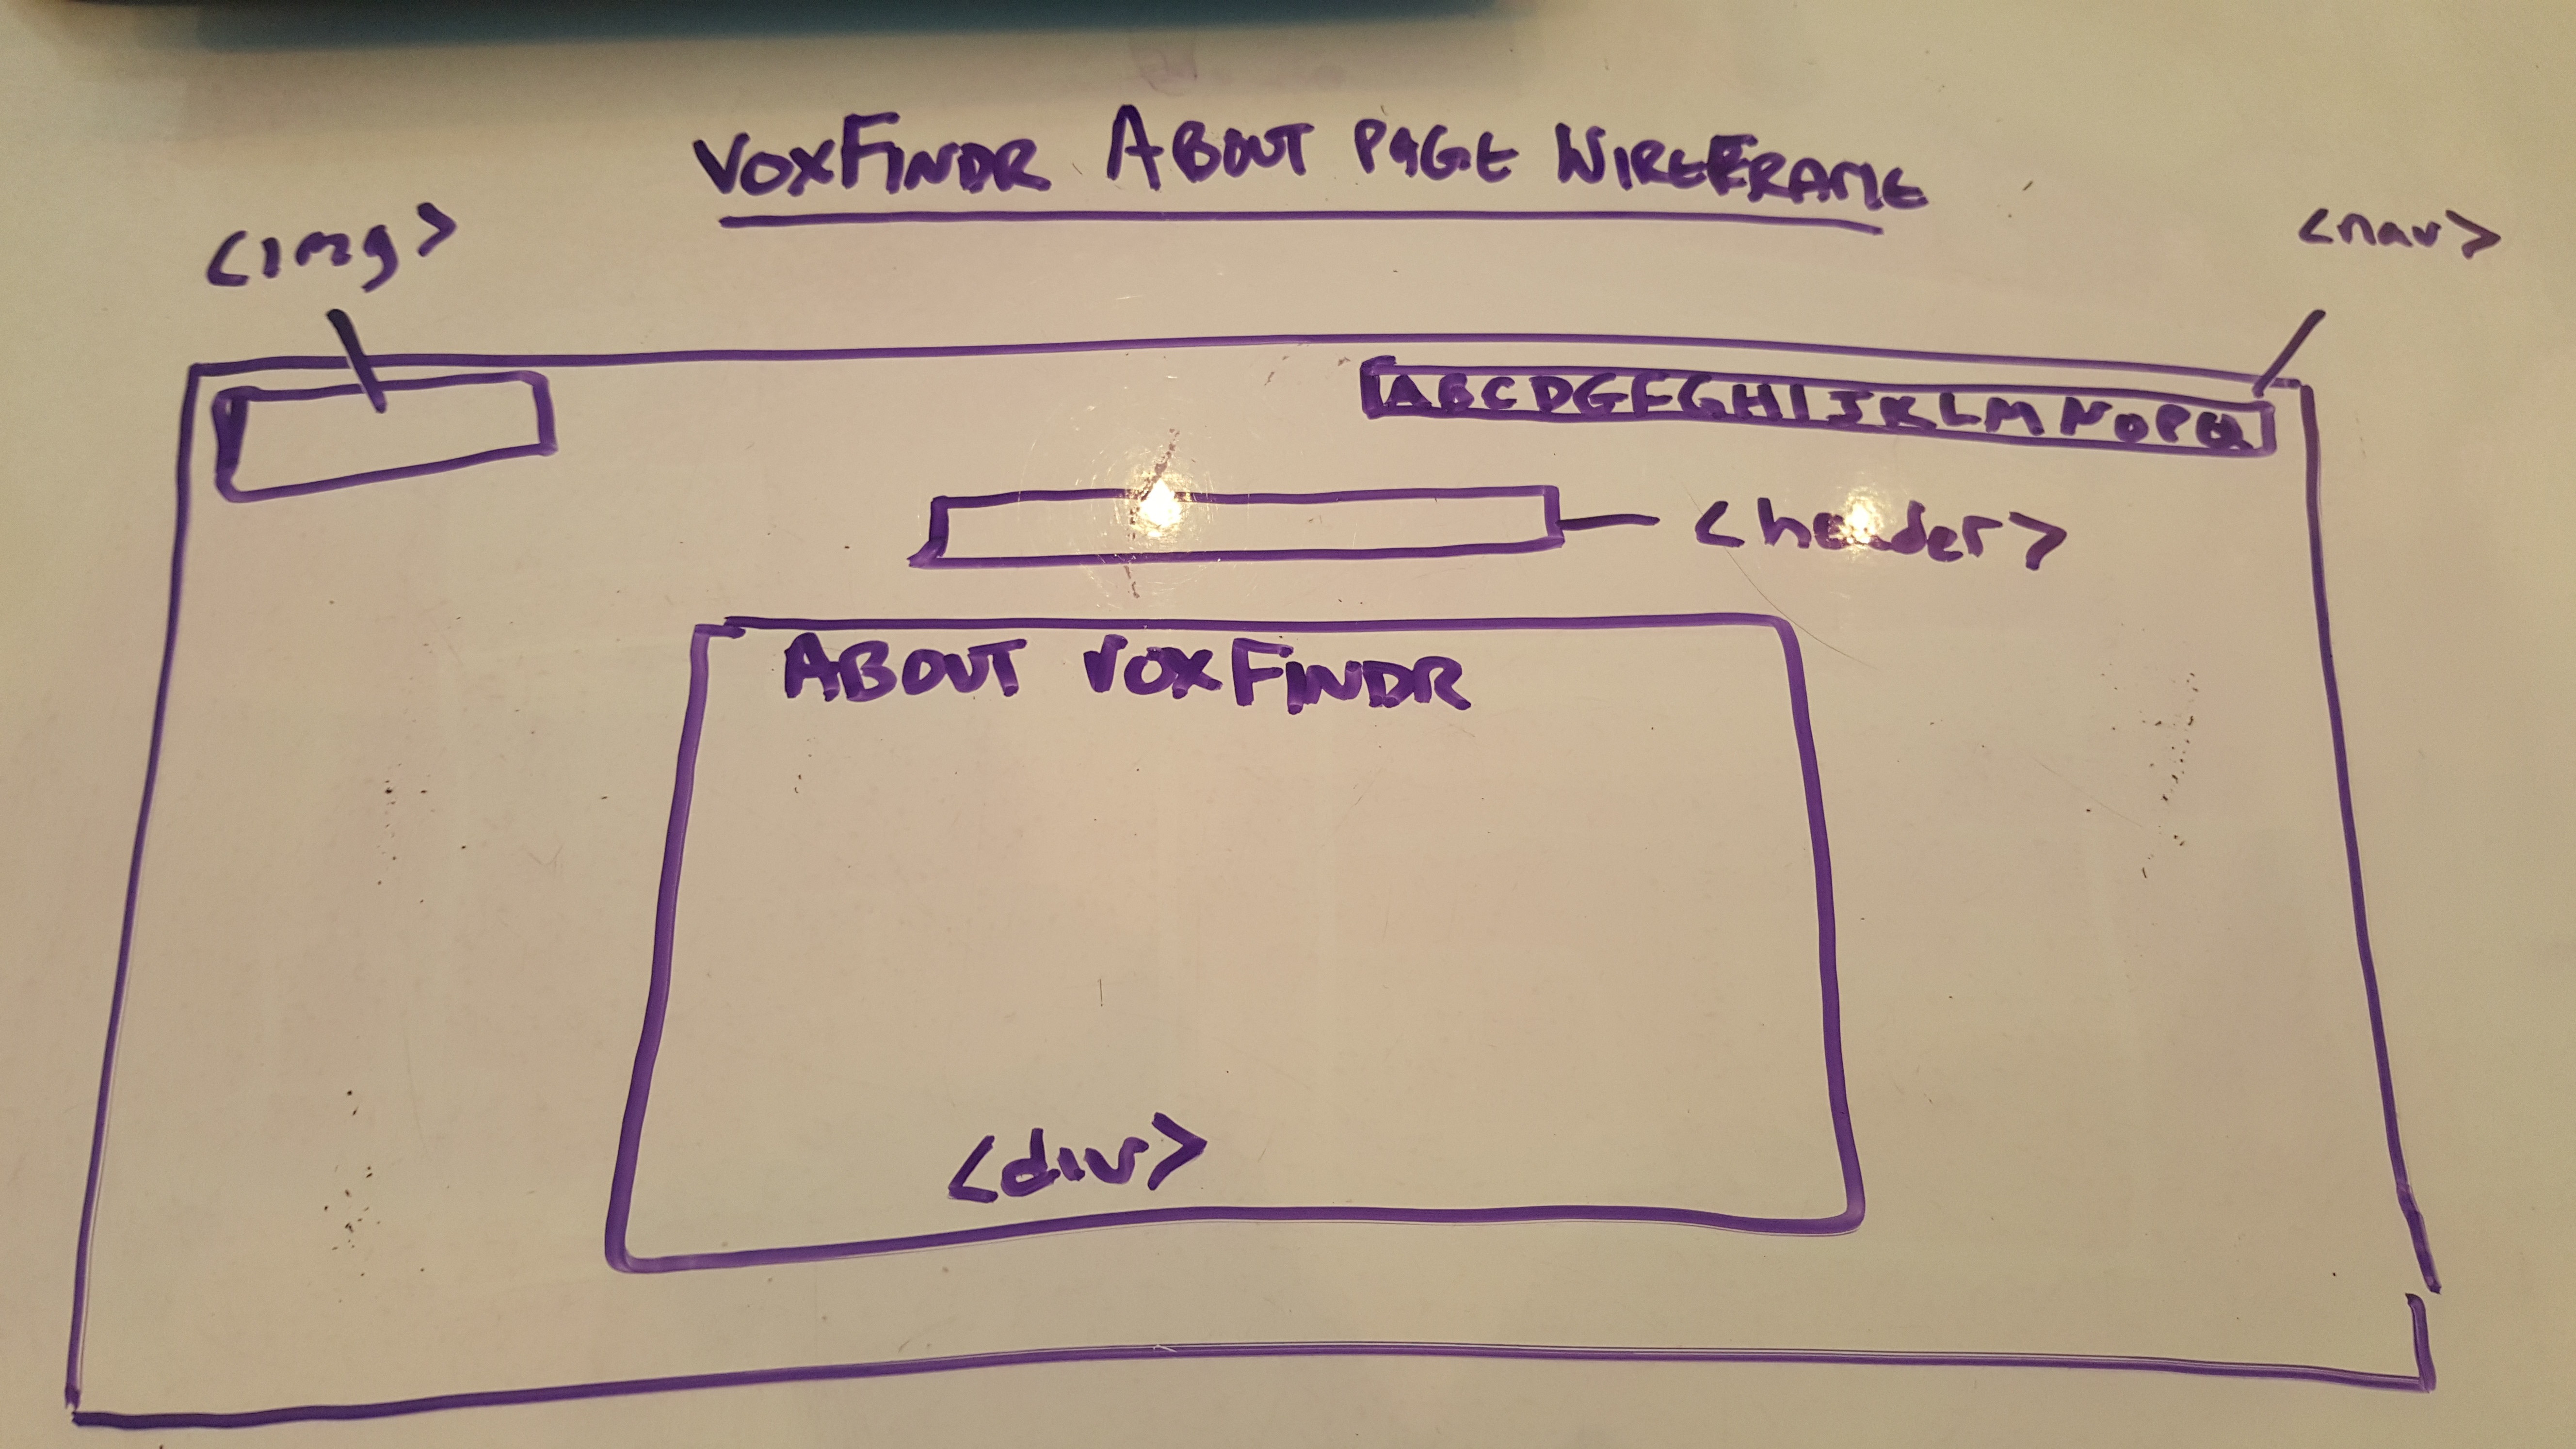 VOXFINDR ABOUT PAGE WIREFRAME
<img>
<nav>
ABCDGFGHIJKLMNOPQ
<header>
ABOUT VOXFINDR
<div>